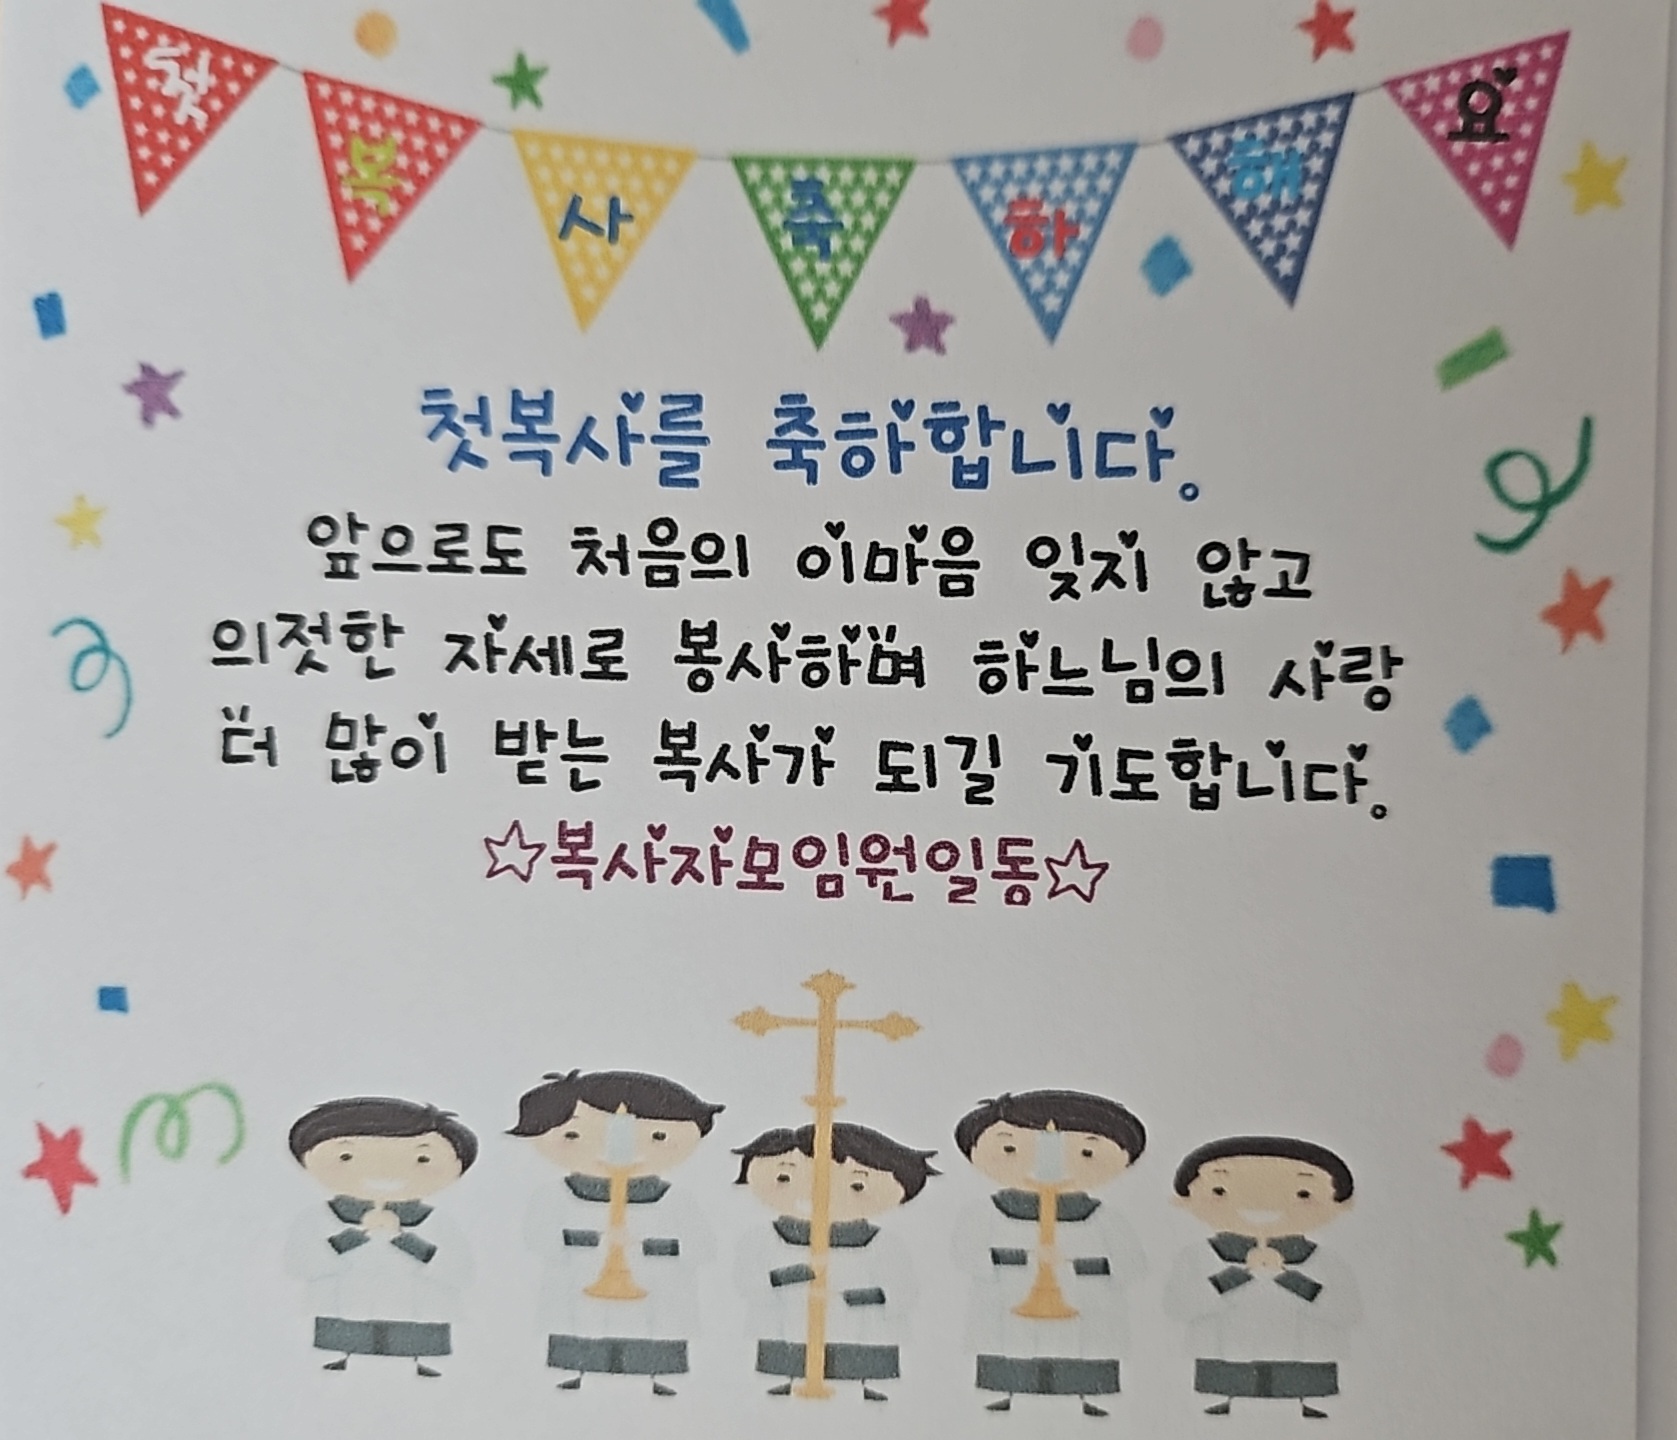 첫복사축하해요
첫복사를 축하합니다.
앞으로도 처음의 이마음 잊지 않고
의젓한 자세로 봉사하며 하느님의 사랑
더 많이 받는 복사가 되길 기도합니다.
☆복사자모임원일동☆